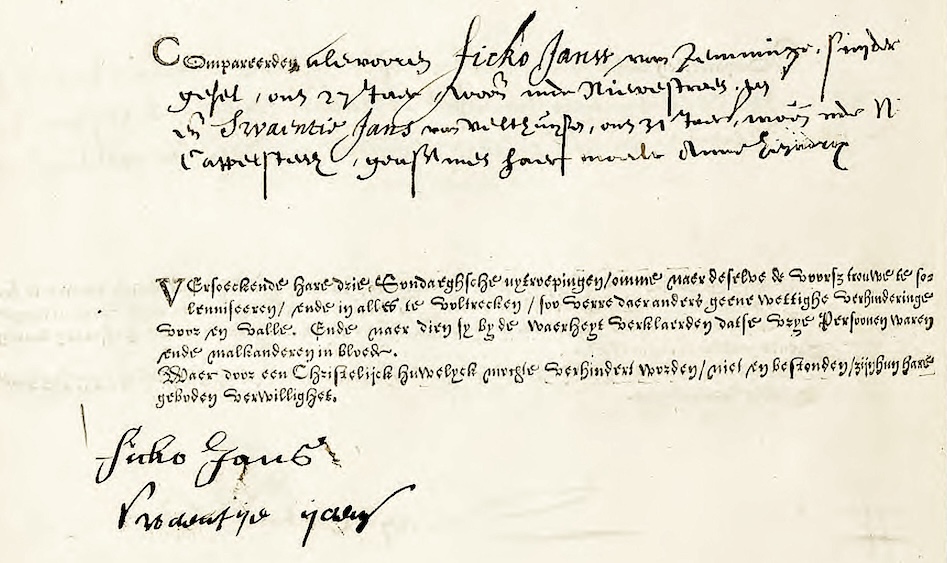 Compareerden als vooren ficko Janss van Jemminge, snyder
gesel, out 27 Jaer, woon inde Niewestraet,
en Swaentie Jans van velthuyse, out 31 Jaer, woon: inde N
Cappelsteeg, geass. met haer moeder Anna
VErsoeckende hare drie Sondaeghsche uytroepingen/omme naer deselve de voorsz trouwe te so-
lenniseeren/ ende in alles te voltrecken/ soo verre daer anders geene wettighe verhinderinge
voor en valle. Ende naer dien sy by de waerheyt verklaerden datse vrye Persoonen waren
ende malkanderen in bloede.
Waer door een Christelijck huwelyck mogte verhindert worden/ niet en bestonden/ zijn hun hare
geboden verwillighet.
ficko Jans
Swaentije ijans